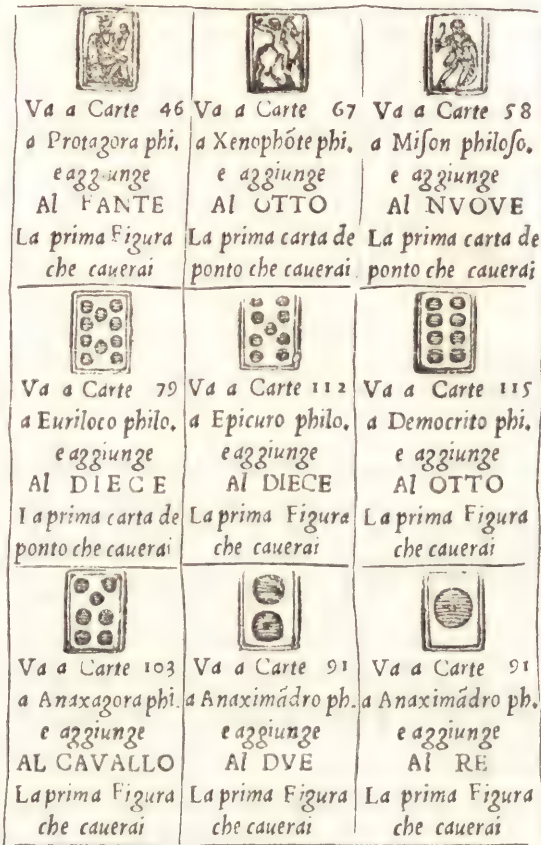 Va a Carte 46
a Protagora phi.
e aggiunge
Al FANTE
La prima Figura
che cauerai
Va a Carte 67
a Xenophõte phi.
e aggiunge
Al OTTO
La prima carta de
ponto che cauerai
Va a Carte 58
a Miſon philoſo.
e aggiunge
Al NVOVE
La prima carta de
ponto che cauerai
Va a Carte 79
a Euriloco philo.
e aggiunge
Al DIECE
La prima carta de
ponto che cauerai
Va a Carte 112
a Epicuro philo.
e aggiunge
Al DIECE
La prima Figura
che cauerai
Va a Carte 115
a Democrito phi.
e aggiunge
Al OTTO
La prima Figura
che cauerai
Va a Carte 103
a Anaxagora phi.
e aggiunge
AL CAVALLO
La prima Figura
che cauerai
Va a Carte 91
a Anaximãdro ph.
e aggiunge
Al DVE
La prima Figura
che cauerai
Va a Carte 91
a Anaximãdro ph.
e aggiunge
Al RE
La prima Figura
che cauerai